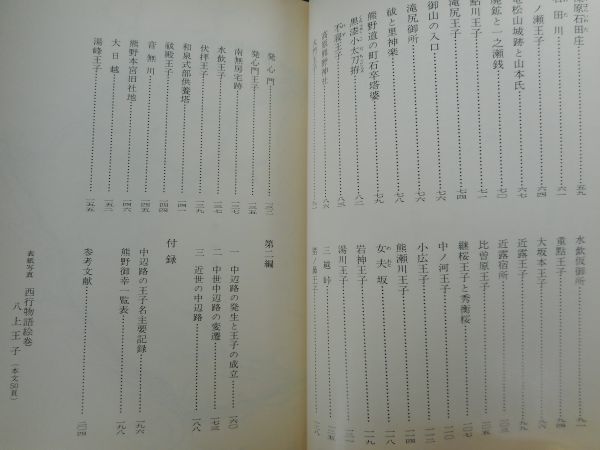 原石田庄……五九
石田川……六一
ノ瀬王子……六四
竜松山城跡と山本氏……六七
廃鉱と一之瀬銭……七一
鮎川王子……七四
滝尻王子……七五
御山の入口……七六
滝尻御所……七六
祓と里神楽……七七
熊野道の町石卒塔婆……七九
黒漆小太刀拵……八二
不寝王子……八三
高原熊野神社
大門王子
水飲仮御所……九一
重點王子
大坂本王子
近露王子
近露宿所
比曽原王子……一〇五
継桜王子と秀衡桜……一〇七
中ノ河王子
小広王子
熊瀬川王子
女夫坂
岩神王子
湯川王子
三越峠
発心門……一三二
発心門王子……一三五
南無房宅跡……一三七
水飲王子……一三八
伏拝王子……一三九
和泉式部供養塔……一四一
祓殿王子……一四四
音無川……一四五
熊野本宮旧社地……一四六
大日越……一五二
湯峰王子……一五五
第二編
一 中辺路の発生と王子の成立……一六〇
二 中世中辺路の変遷……一七三
三 近世の中辺路……一八八
付録
中辺路の王子名主要記録……一九六
熊野御幸一覧表……一九八
参考文献……二〇四
表紙写真 西行物語絵巻
八上王子(本文50頁)